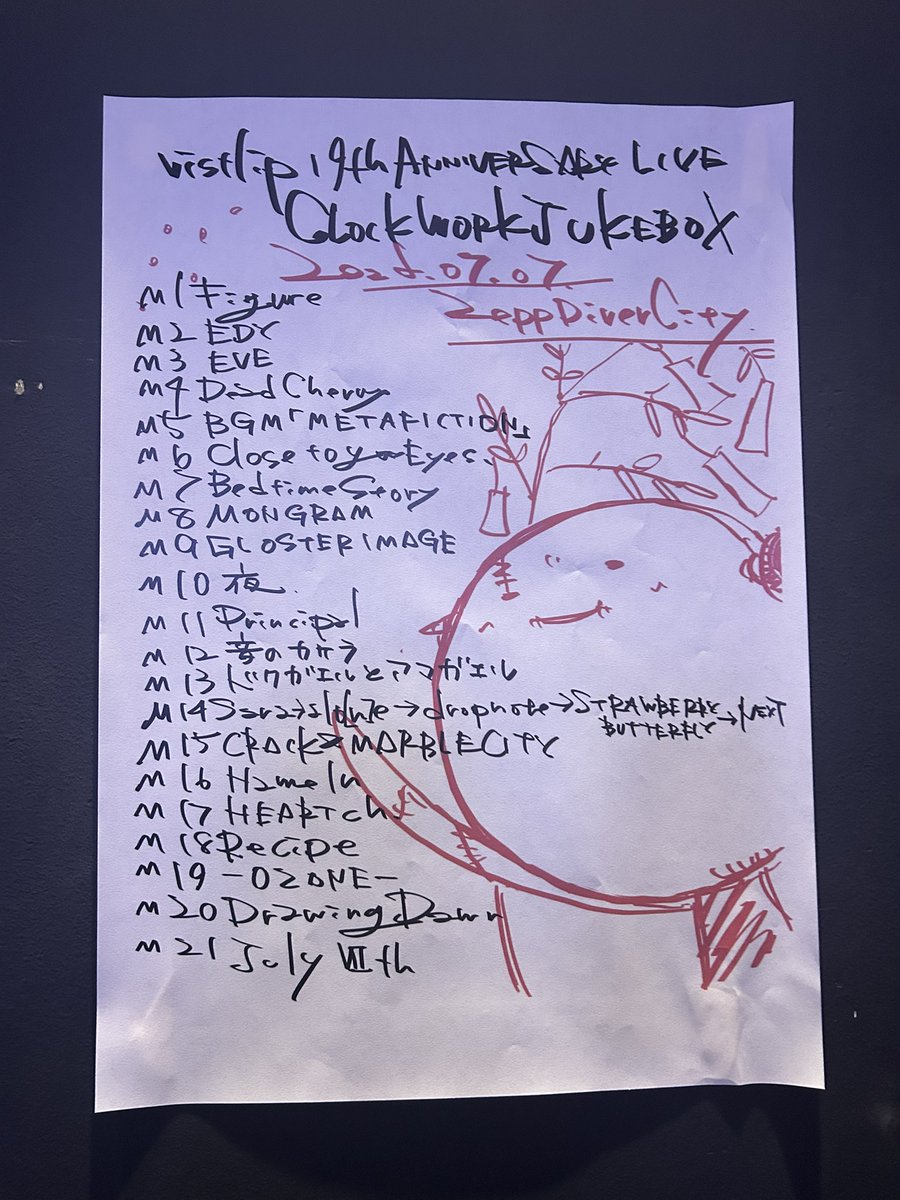 vistlip 19th ANNIVERSARY LIVE
CLOCKWORK JUKEBOX
07.07.
Zepp DiverCity.
M1 Figure
M2 EDY
M3 EVE
M4 Dead Cherry
M5 BGM「METAFICTION」
M6 Close to Eyes.
M7 Bedtime Story
M8 MONGRAM
M9 GLOSTER IMAGE
M10 夜
M11 Principal
M12 音のカケラ
M13 ドクガエルとアマガエル
M14 Sara→→dropnote→STRAWBERRY BUTTERFLY→NEXT
M15 CRACK&MARBLE CITY
M16 Hameln
M17 HEART ch.
M18 Recipe
M19 -OZONE-
M20 Drawing Dawn
M21 July Ⅶth